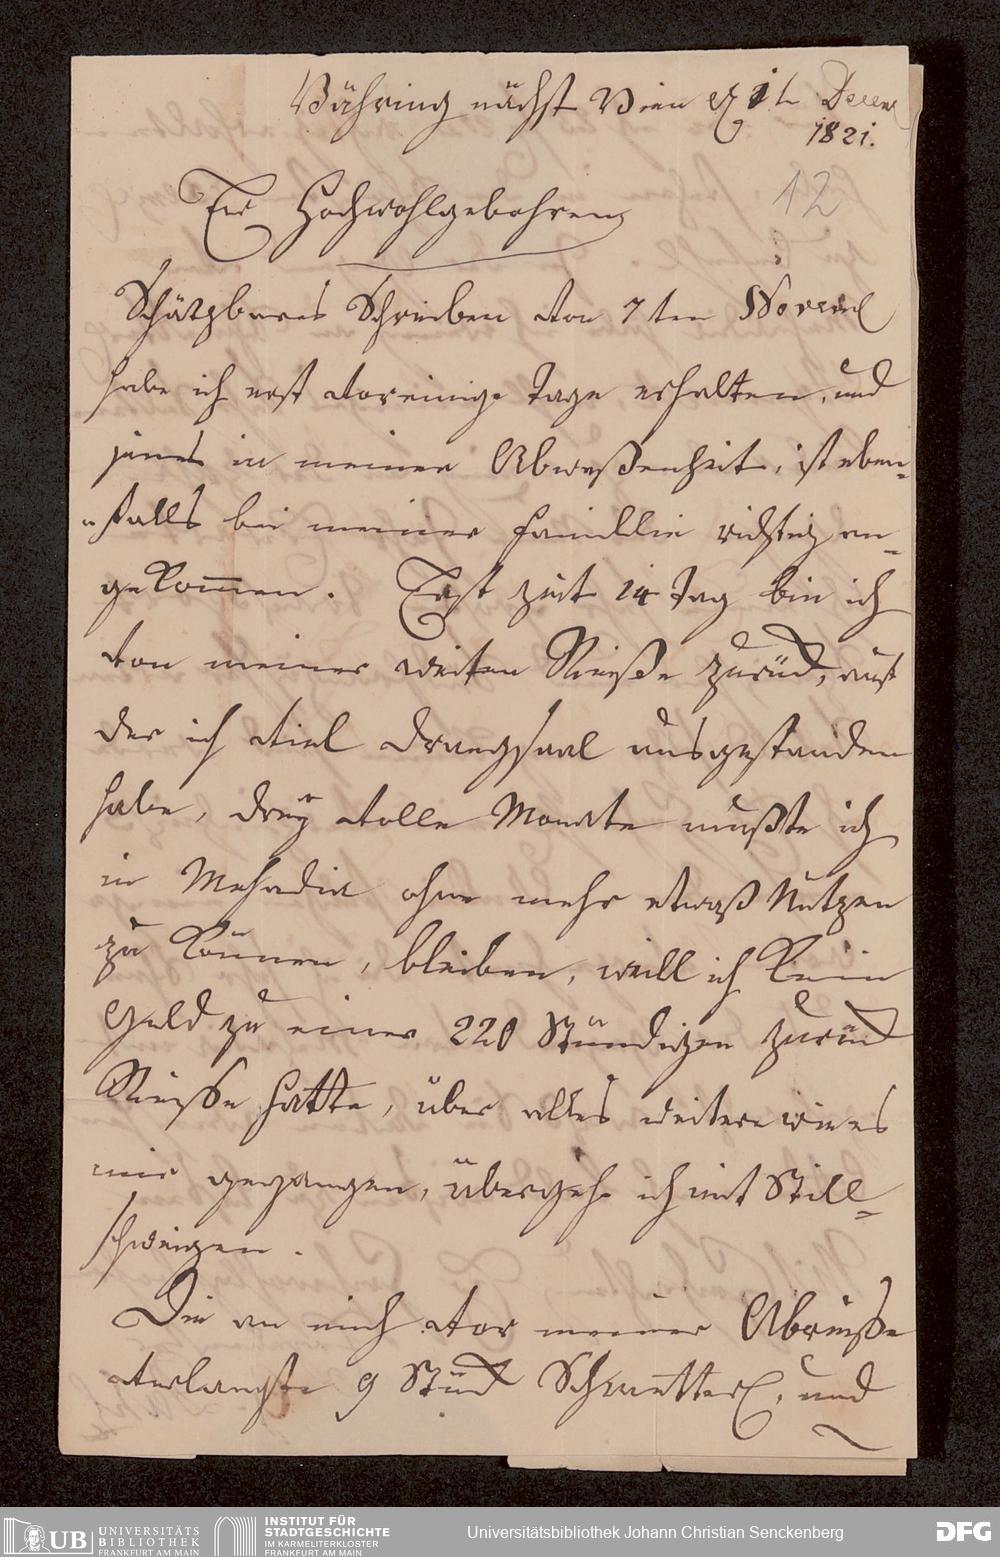 Währing nächst Wien d 1t Decem
1821.
12
Euer Hochwohlgebohren
Schätzbares Schreiben von 7ten Novembr
habe ich erst vor einige Tage erhalten, und
jenes in meiner Abweßenheit, ist eben-
falls bei meiner Familie richtig an-
gekommen. Erst zeit 14 Tag bin ich
von meiner weiten Reiße zurück, auf
der ich viel Drangsaal ausgestanden
habe, drey volle Monate mußte ich
in Mehadia ohne mehr etwaß Nutzen
zu können, bleiben, weill ich kein
Geld zu einer 220 Stündigen zurück
Reisse hatte, über alles weitere wie es
mir gegangen, übergehe ich mit Still-
schweigen.
Die an mich vor meiner Abreiße
verlangte 9 Stück Schmetterl, und
UB UNIVERSITÄTS
BIBLIOTHEK
FRANKFURT AM MAIN
INSTITUT FÜR
STADTGESCHICHTE
IM KARMELITERKLOSTER
FRANKFURT AM MAIN
Universitätsbibliothek Johann Christian Senckenberg
DFG